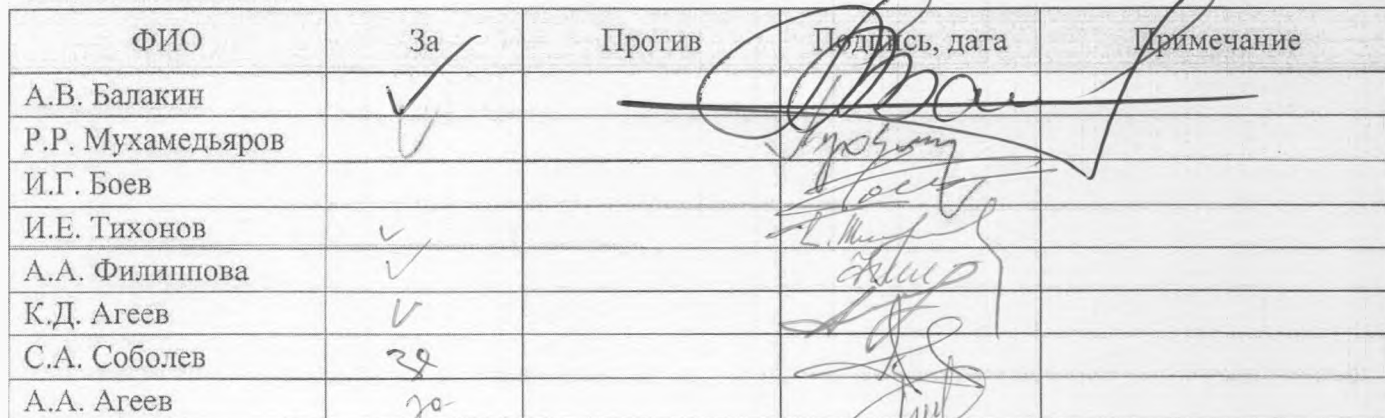 ФИО За Против Подпись, дата Примечание
А.В. Балакин
Р.Р. Мухамедьяров
И.Г. Боев
И.Е. Тихонов
А.А. Филиппова
К.Д. Агеев
С.А. Соболев за
А.А. Агеев за